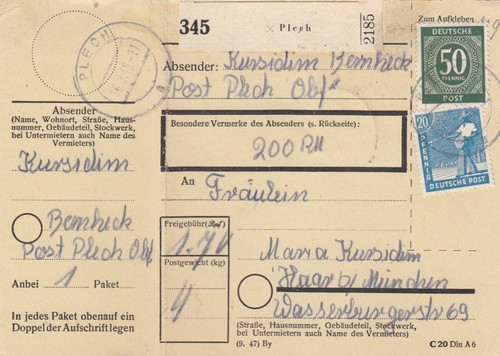 345
Plech
2185
Zum Aufkleben
PLECH
Absender: Kursidim Bernheck
Post Plech Obf.
DEUTSCHE
50
PFENNIG
POST
20
PFENNIG
DEUTSCHE POST
Absender
(Name, Wohnort, Straße, Haus-
nummer, Gebäudeteil, Stockwerk,
bei Untermietern auch Name des
Vermieters)
Kursidim
Bernheck
Post Plech Obf.
Anbei 1 Paket
In jedes Paket obenauf ein
Doppel der Aufschrift legen
Besondere Vermerke des Absenders (s. Rückseite):
200 RM
An
Fräulein
Freigebühr
1.70
Postgewicht (kg)
4
Maria Kursidim
Haar b/ München
Wasserburgerstr 69
(Straße, Hausnummer, Gebäudeteil, Stockwerk,
bei Untermietern auch Name des Vermieters)
(9. 47) By
C 20 Din A 6